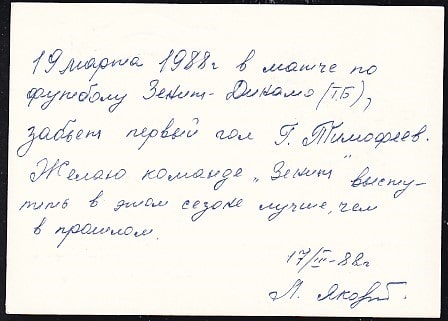 19 марта 1988г в матче по
футболу Зенит-Динамо (ТБ),
забьет первый гол Г. Тимофеев.
Желаю команде „Зенит" высту-
пить в этом сезоне лучше, чем
в прошлом.
17/III-88г
Л.